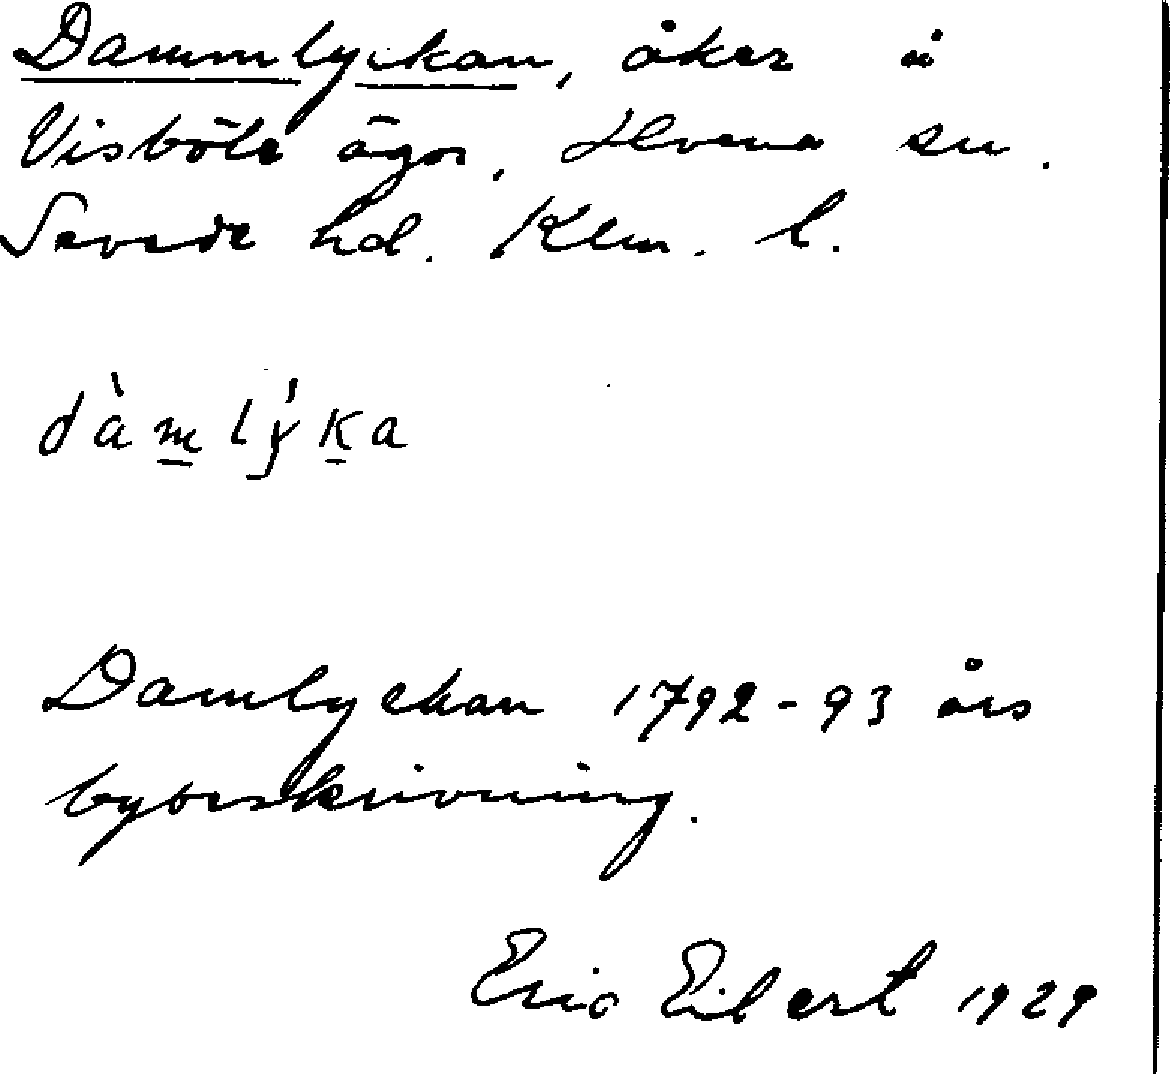 Dammlyckan, åker å
Visböle ägor, Hvena sn.
Sevede hd. Klm. l.
dàm̱lý́ḵa
Damlyckan 1792-93 års
bybeskrivning.
Eric Eilert 1929